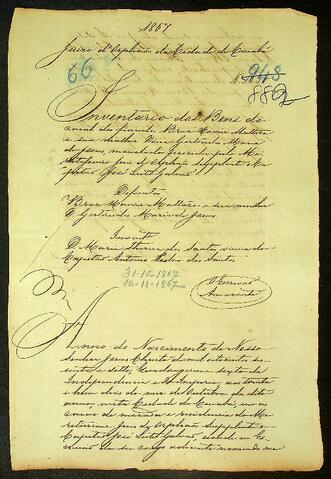 1867
Juizo d'Orphãos da Cidade de Cuiabá
66
948
882
Inventario dos Bens do
casal dos finados Braz
e sua mulher Dona Gertrudes Maria
de Jesus, mandado proceder pelo Me-
retissimo Juiz de Orphãos Supplente Ca-
pitão José Leite Galvão
Defuntos
Braz e sua mulher
D. Gertrudes Maria de Jesus
D. Maria Thereza dos Santos, viuva do
Capitão Antonio dos Santos
31-10-1867
12-11-1867
O Escrivão
Amarante
Anno do Nascimento de Nosso
Senhor Jesus Christo de mil oito centos ses-
senta e sette, quadragesimo sexto da
Independencia e do Imperio, aos trinta
e hum dias do mez de Outubro do dito
anno, nesta Cidade de Cuiabá, em
casas de morada e residencia do Me-
retissimo Juiz de Orphãos Supplente o
Capitão José Leite Galvão, onde eu Es-
crivão de seu cargo adiante nomeado me